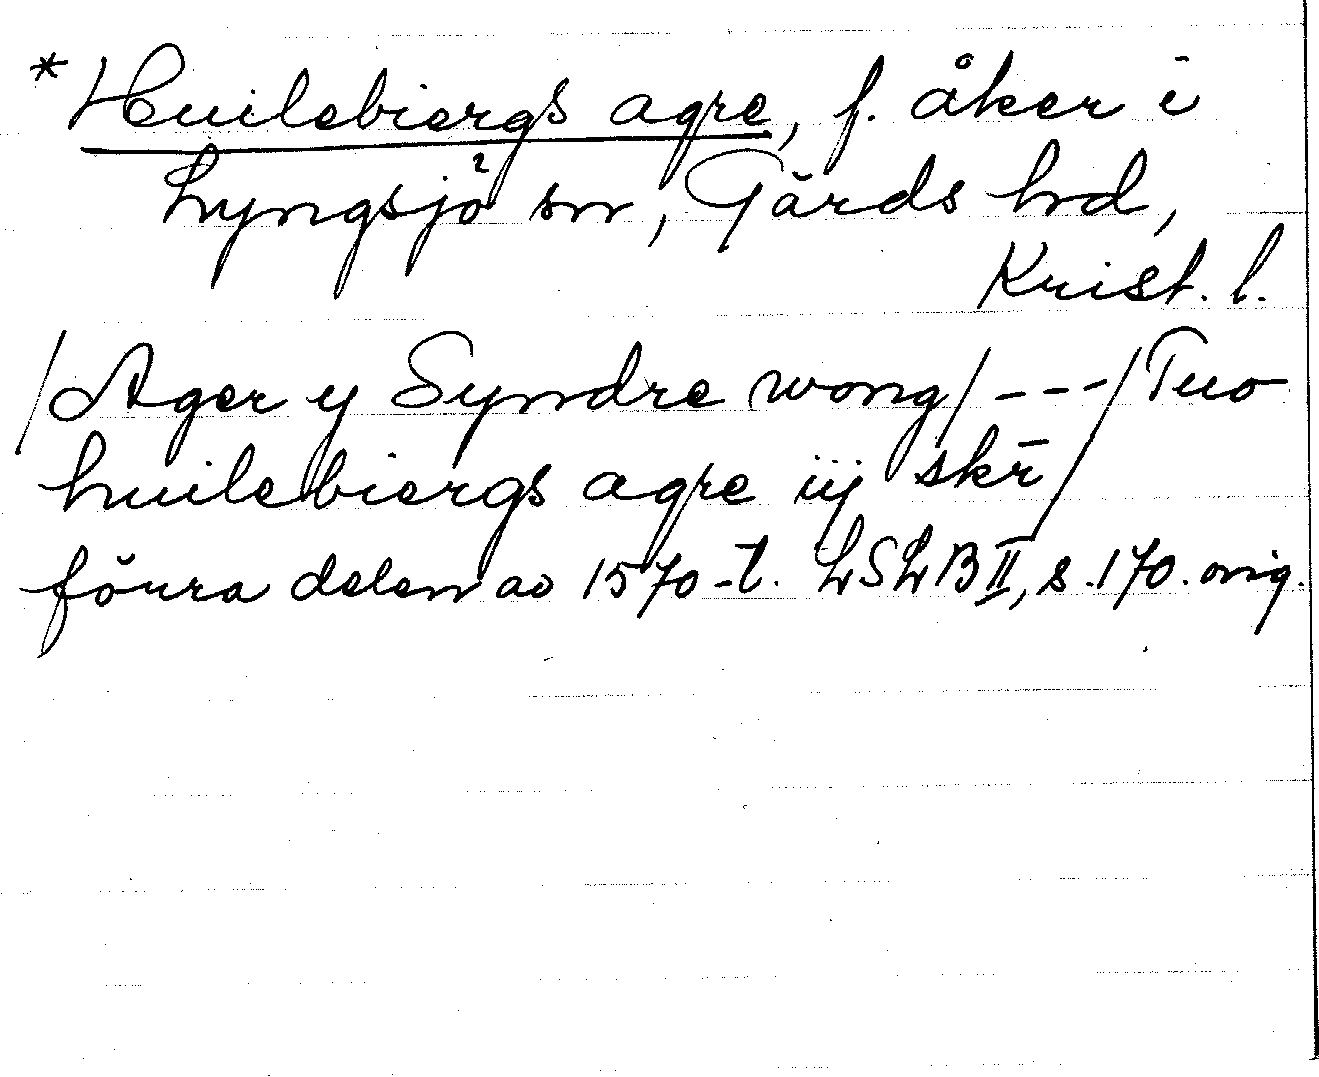 * Huilebiergs agre, f. åker i
Lyngsjö sn, Gärds hd,
Krist. l.
/Ager y Syndre wong/ - - - / Tuo
huilebiergs agre iij skr̄ /
förra delen av 1570-t. LSLB II, s. 170. orig.